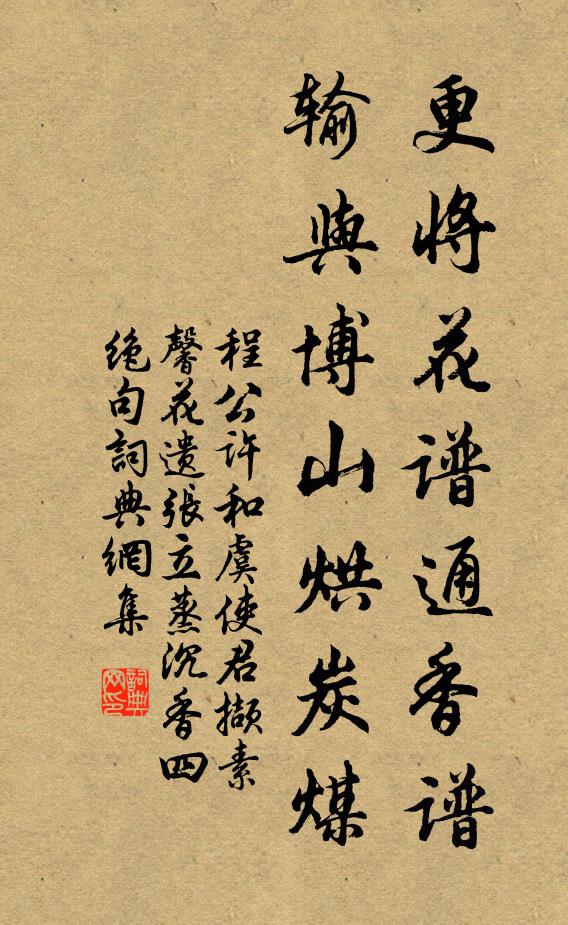 更将花谱通香谱
输與博山烘炭煤
程公许和虞使君撷素
馨花遗張立蒸沉香四
絶句詞典網集
詞典网印